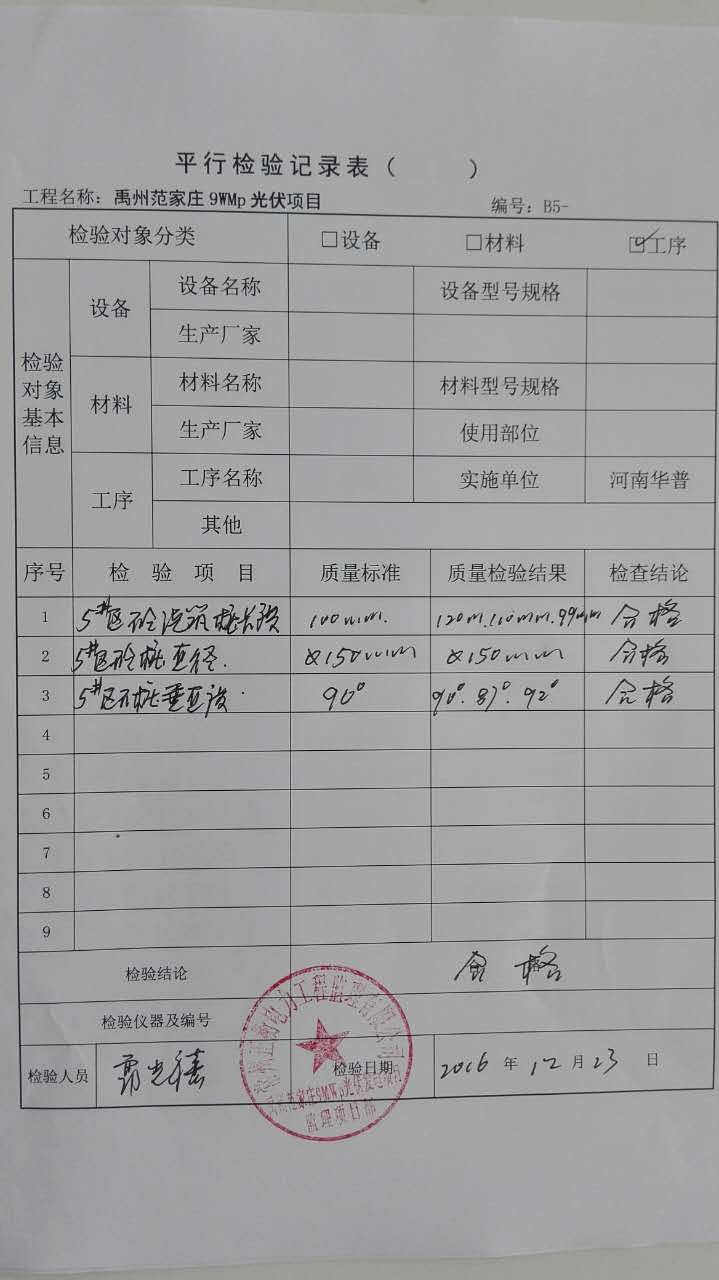 平行检验记录表（　　）
工程名称：禹州范家庄9WMp光伏项目 编号：B5-
检验对象分类 □设备 □材料 ☑工序
检验对象基本信息
设备 设备名称 设备型号规格
生产厂家
材料 材料名称 材料型号规格
生产厂家 使用部位
工序 工序名称 实施单位 河南华普
其他
序号 检验项目 质量标准 质量检验结果 检查结论
1 5#区砼浇筑桩长度 100mm. 120m.110mm.99mm 合格
2 5#区砼桩直径. 150mm 150mm 合格
3 5#区砼桩垂直度. 90° 90°.87°.92° 合格
4
5
6
7
8
9
检验结论 合格
检验仪器及编号
检验人员 检验日期 2016年12月23日
电力工程监理有限公司
范家庄9MWp光伏发电项目
监理项目部